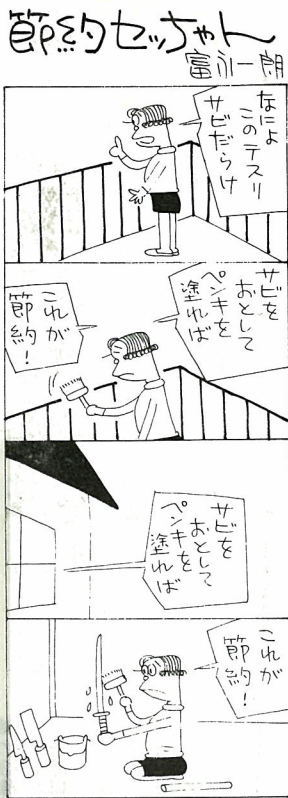 節約セッちゃん
富永一朗
なによ
このテスリ
サビだらけ
サビを
おとして
ペンキを
塗れば
これが
節約!
サビを
おとして
ペンキを
塗れば
これが
節約!